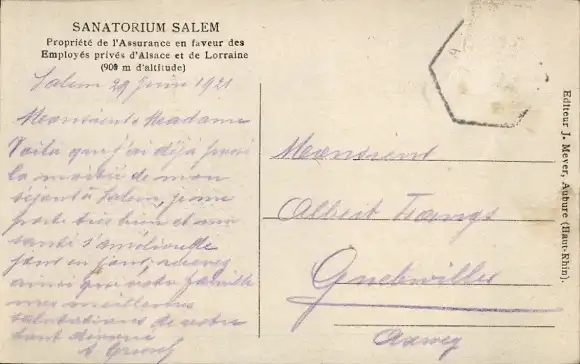 SANATORIUM SALEM
Propriété de l'Assurance en faveur des
Employés privés d'Alsace et de Lorraine
(909 m d'altitude)
Salem 29 Juin 1921
Monsieur & Madame
Voilà que j'ai déjà passé
la moitié de mon
séjour à Salem, je me
porte très bien et ma
santé s'améliore de
jour en jour; recevez
ainsi que votre famille
mes meilleures
salutations de votre
tout dévoué
Monsieur
Albert
Guebwiller
Editeur J. Meyer, Aubure (Haut-Rhin).